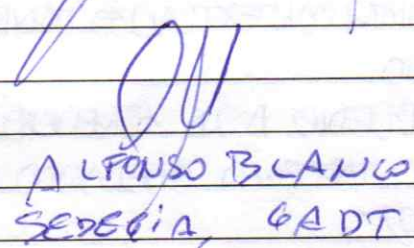 ALFONSO BLANCO
SEDEGIA, GADT